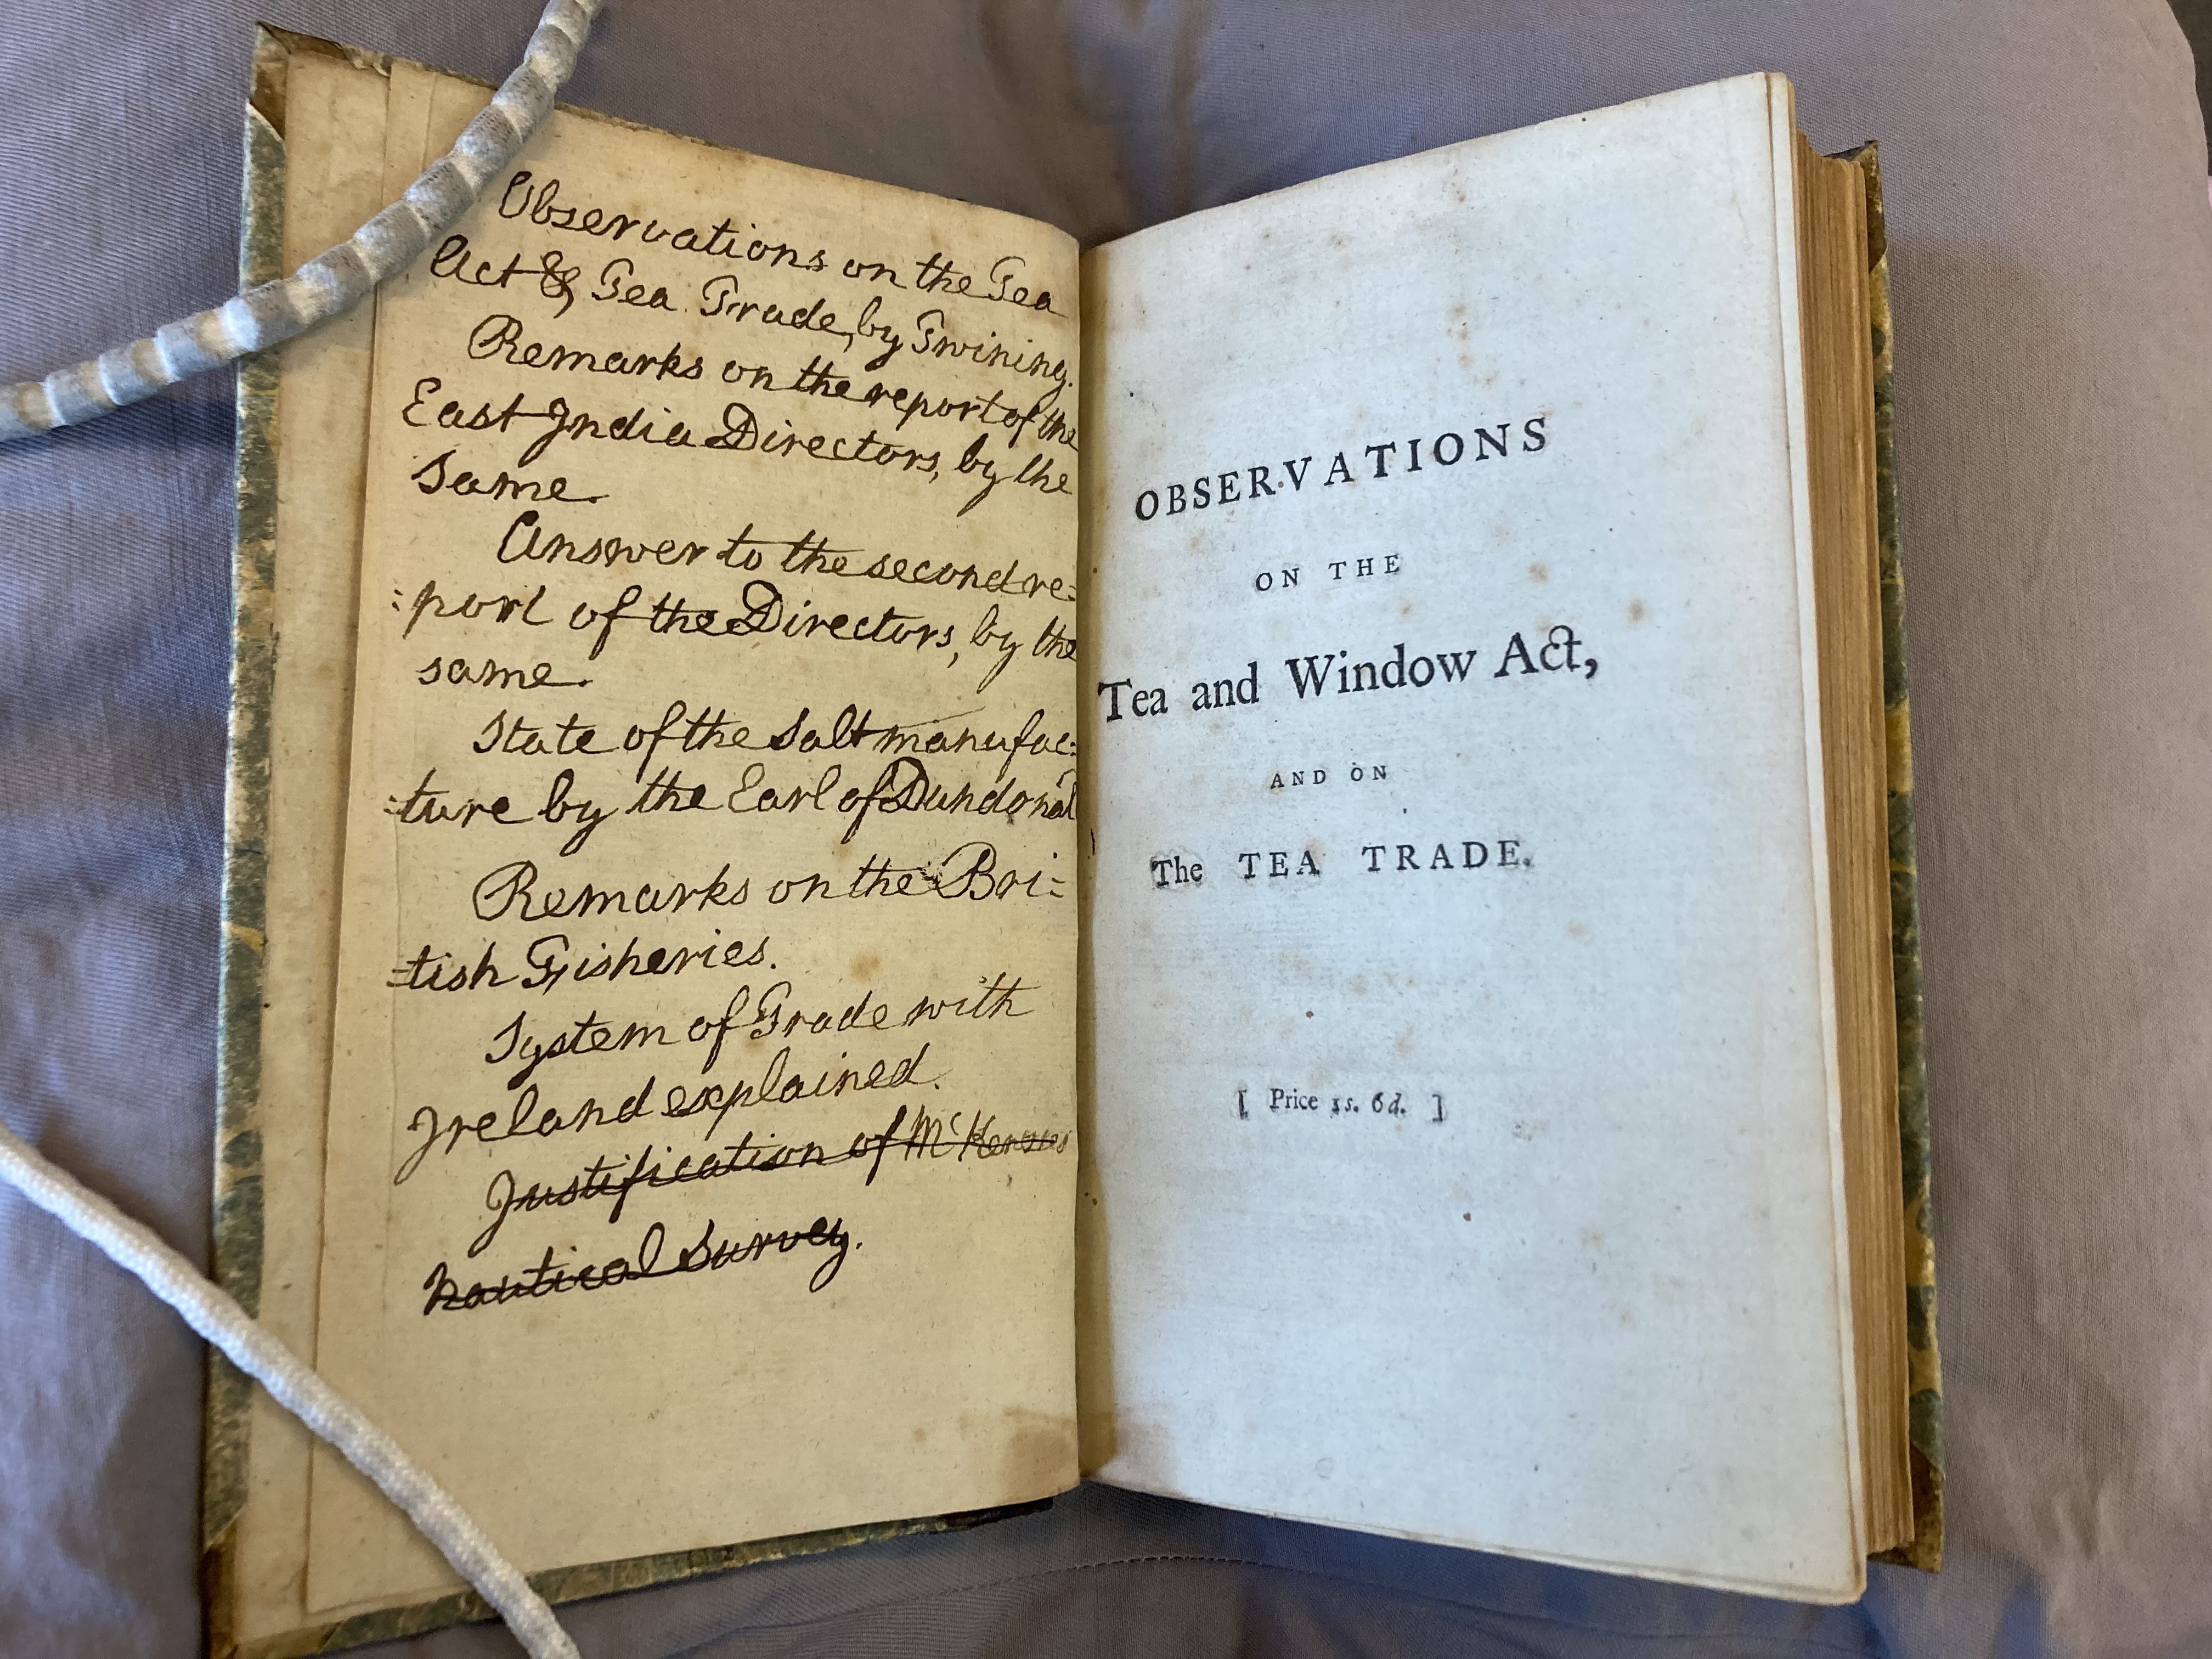 Observations on the Tea
Act & Tea Trade, by Twining.
Remarks on the report of the
East India Directors, by the
same.
Answer to the second re=
:port of the Directors, by the
same.
State of the Salt manufac:
:ture by the Earl of Dundonal
Remarks on the Bri=
=tish Fisheries.
System of Trade with
Ireland explained.
Justification of McKenzies
nautical Survey.
OBSERVATIONS
ON THE
Tea and Window Act,
AND ON
The TEA TRADE.
[ Price 1s. 6d. ]